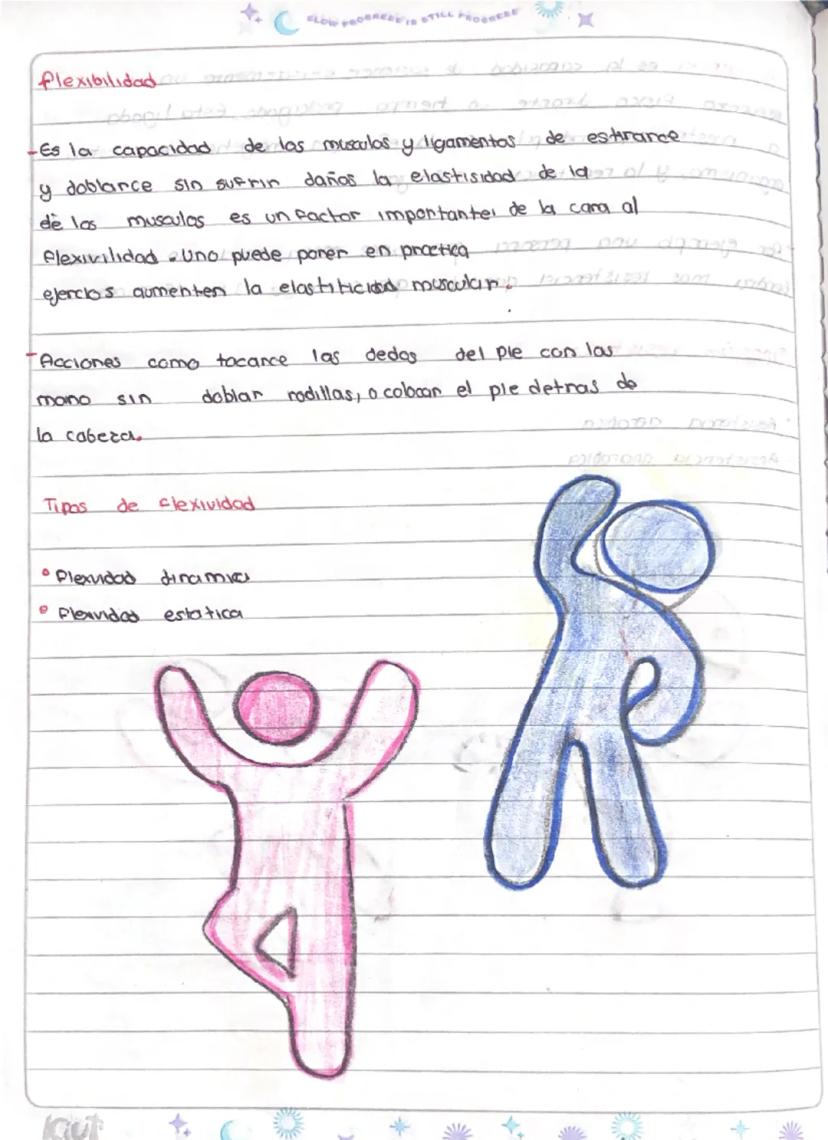 SLOW PROGRESS IS STILL PROGRESS
flexibilidad
-Es la capacidad de los musculos y ligamentos de estirarce
y doblarce sin sufrir daños la elastisidad de la
de los musculos es un factor importantei de la cara al
flexivilidad. Uno puede poner en practica
ejercios aumenten la elastiticidad muscular.
-Acciones como tocarce las dedos del pie con las
mano sin doblar rodillas, o colocar el pie detras de
la cabeza.
Tipos de flexividad
flexvidad dinamica
flexvidad estatica
kiut